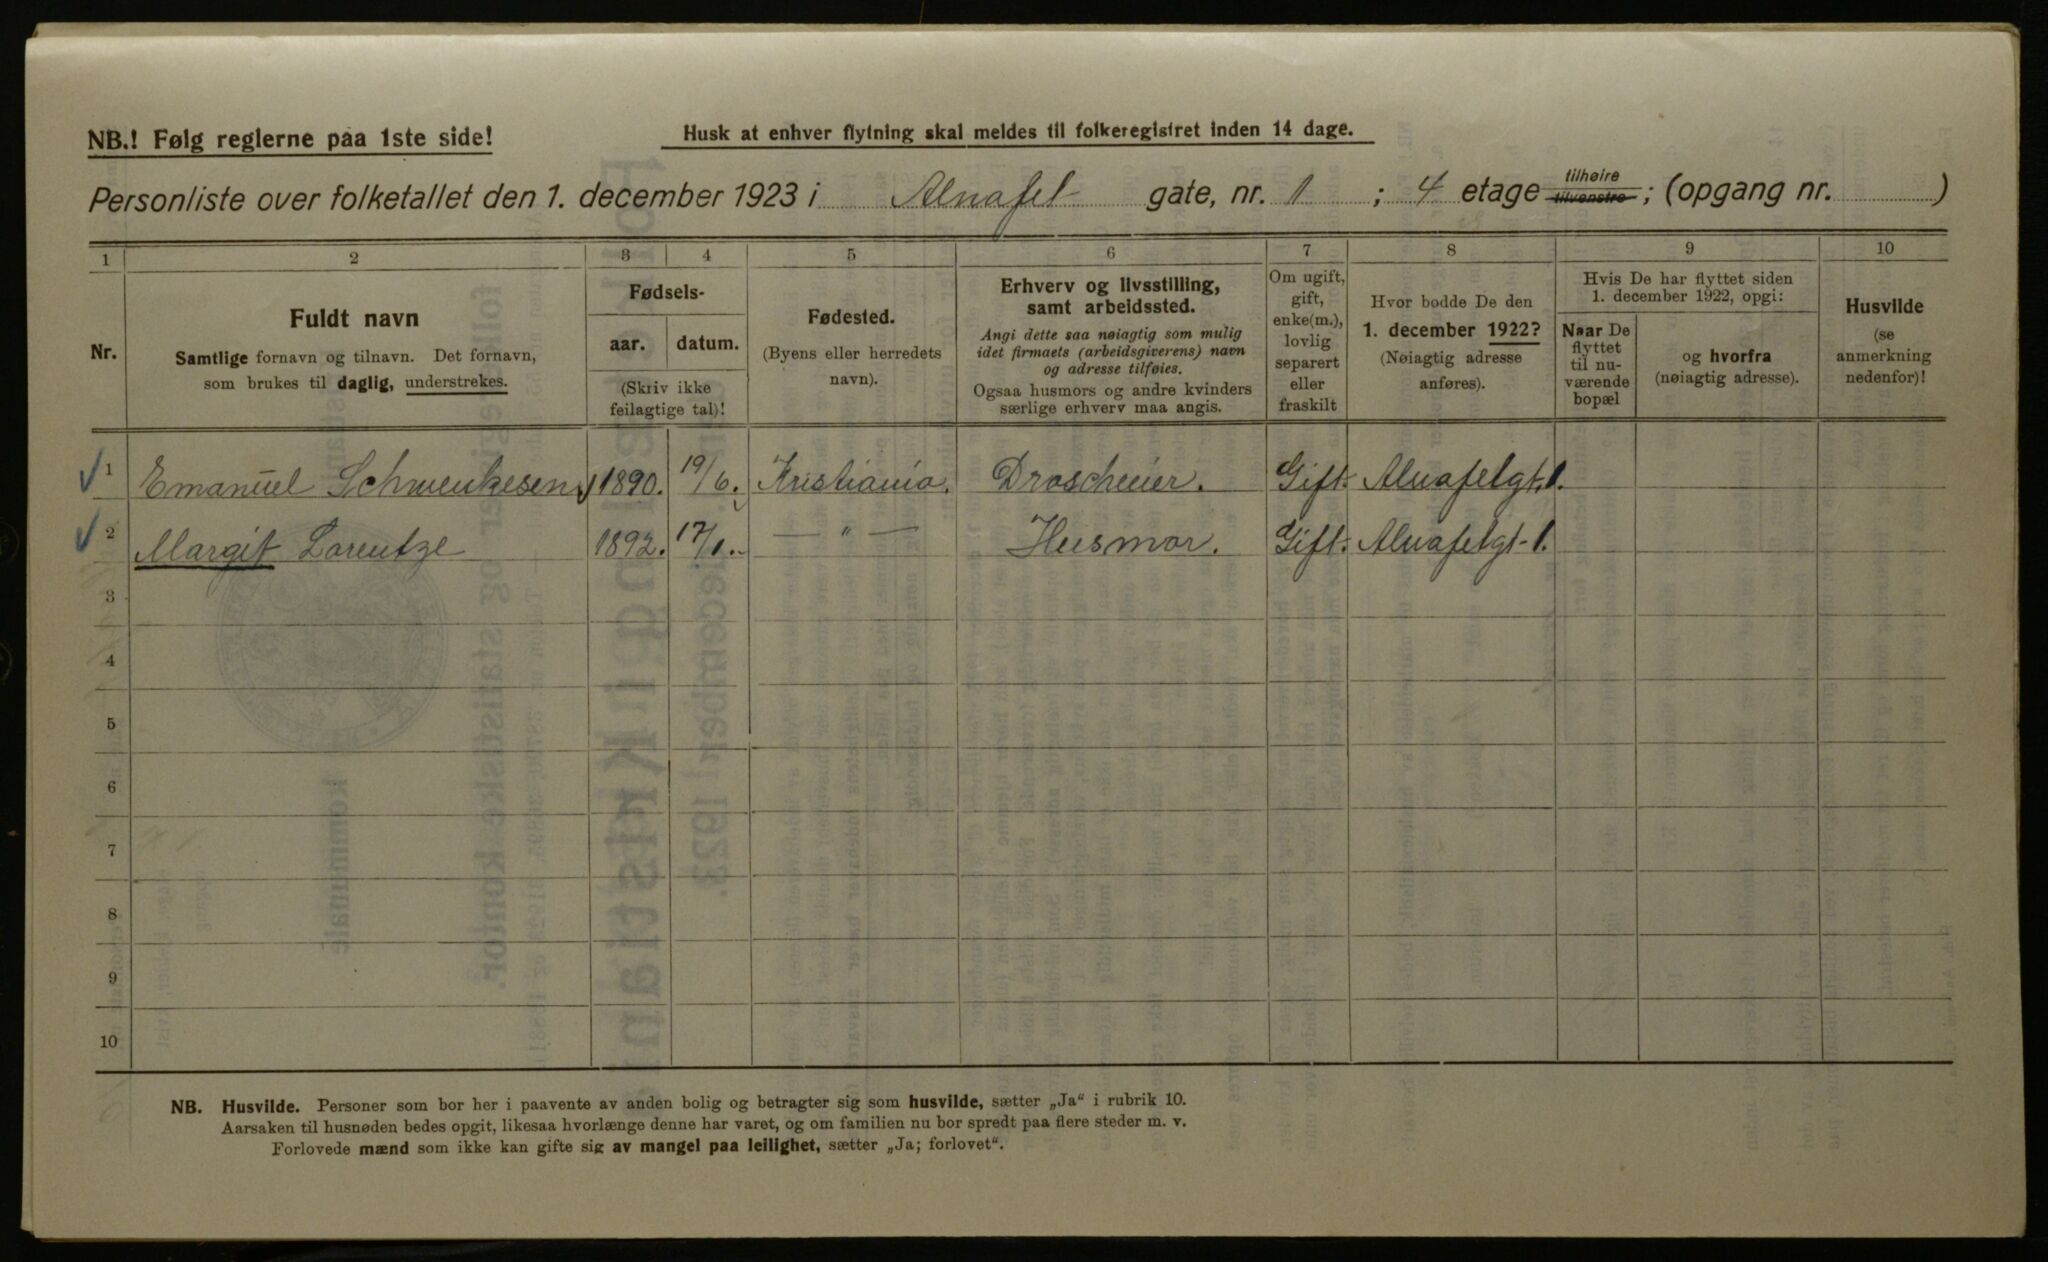 NB.! Følg reglerne paa 1ste side!
Husk at enhver flytning skal meldes til folkeregistret inden 14 dage.
Personliste over folketallet den 1. december 1923 i Alnafet gate, nr. 1 ; 4 etage tilhøire tilvenstre ; (opgang nr. )
1 2 3 4 5 6 7 8 9 10
Nr.
Fuldt navn
Samtlige fornavn og tilnavn. Det fornavn,
som brukes til daglig, understrekes.
Fødsels-
aar. datum.
(Skriv ikke
feilagtige tal)!
Fødested.
(Byens eller herredets
navn).
Erhverv og livsstilling,
samt arbeidssted.
Angi dette saa nøiagtig som mulig
idet firmaets (arbeidsgiverens) navn
og adresse tilføies.
Ogsaa husmors og andre kvinders
særlige erhverv maa angis.
Om ugift,
gift,
enke(m.),
lovlig
separert
eller
fraskilt
Hvor bodde De den
1. december 1922?
(Nøiagtig adresse
anføres).
Hvis De har flyttet siden
1. december 1922, opgi:
Naar De
flyttet
til nu-
værende
bopæl
og hvorfra
(nøiagtig adresse).
Husvilde
(se
anmerkning
nedenfor)!
1 Emanuel Schwenkesen 1890. 19/6. Kristiania. Droscheier. Gift. Alnafetgt. 1.
2 Margit Lorentze 1892. 17/1. — " — Husmor. Gift. Alnafetgt-1.
3
4
5
6
7
8
9
10
NB. Husvilde. Personer som bor her i paavente av anden bolig og betragter sig som husvilde, sætter „Ja“ i rubrik 10.
Aarsaken til husnøden bedes opgit, likesaa hvorlænge denne har varet, og om familien nu bor spredt paa flere steder m. v.
Forlovede mænd som ikke kan gifte sig av mangel paa leilighet, sætter „Ja; forlovet“.